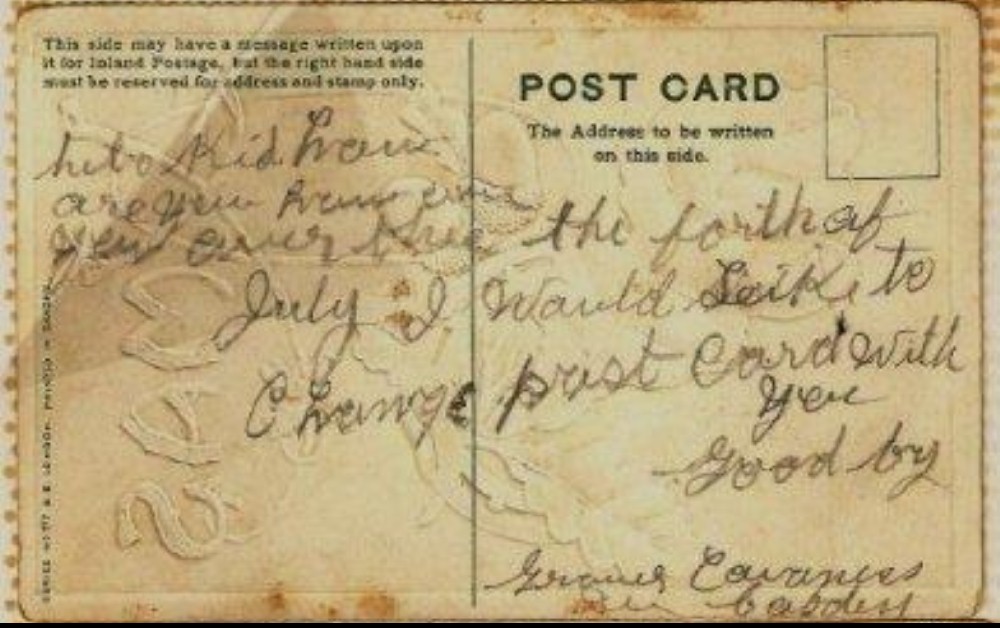 This side may have a message written upon
it for Inland Postage, but the right hand side
must be reserved for address and stamp only.
POST CARD
The Address to be written
on this side.
helo Kid how
are you how
you over the forth of
July I Would Leike to
Change post Card with
you
Good by